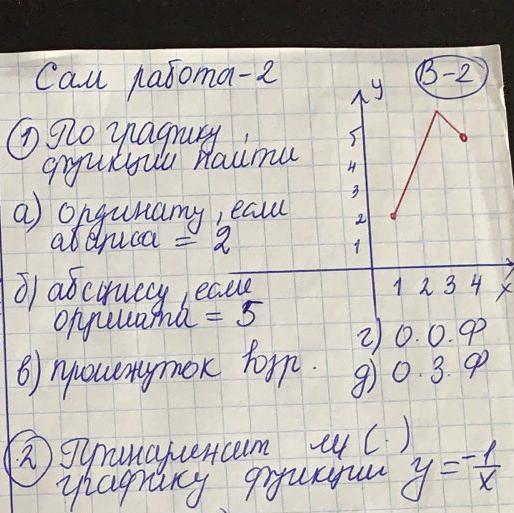 Сам работа-2
В-2
① По графику
функции найти
а) ординату, если
абсциса = 2
б) абсциссу, если
ордината = 5
в) промежуток возр.
у
5
4
3
2
1
1 2 3 4 х
г) О.О.Ф
д) О.З.Ф
② Принадлежит ли (.)
графику функции y = -1/x